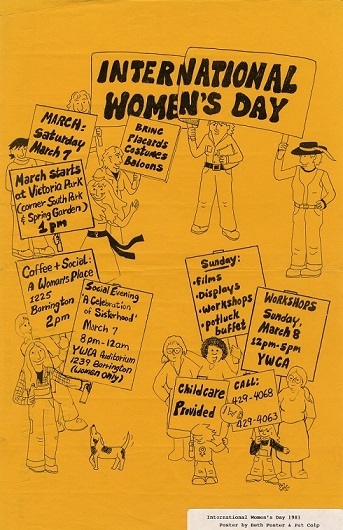 INTERNATIONAL
WOMEN'S DAY
MARCH:
Saturday
March 7
BRING
Placards
Costumes
Baloons
March starts
at Victoria Park
(corner South Park
& Spring Garden)
1 pm
Coffee + Social:
A Woman's Place
1225
Barrington
2 pm
Social Evening
'A Celebration
of Sisterhood'
March 7
8 pm-12am
YWCA Auditorium
1239 Barrington
(Women Only)
Sunday:
•films
•Displays
•Workshops
•potluck
buffet
WORKSHOPS
Sunday,
March 8
12pm-5pm
YWCA
Childcare
Provided
CALL:
429-4068
429-4063
International Women's Day 1981
Poster by Beth Poster & Pat Colp